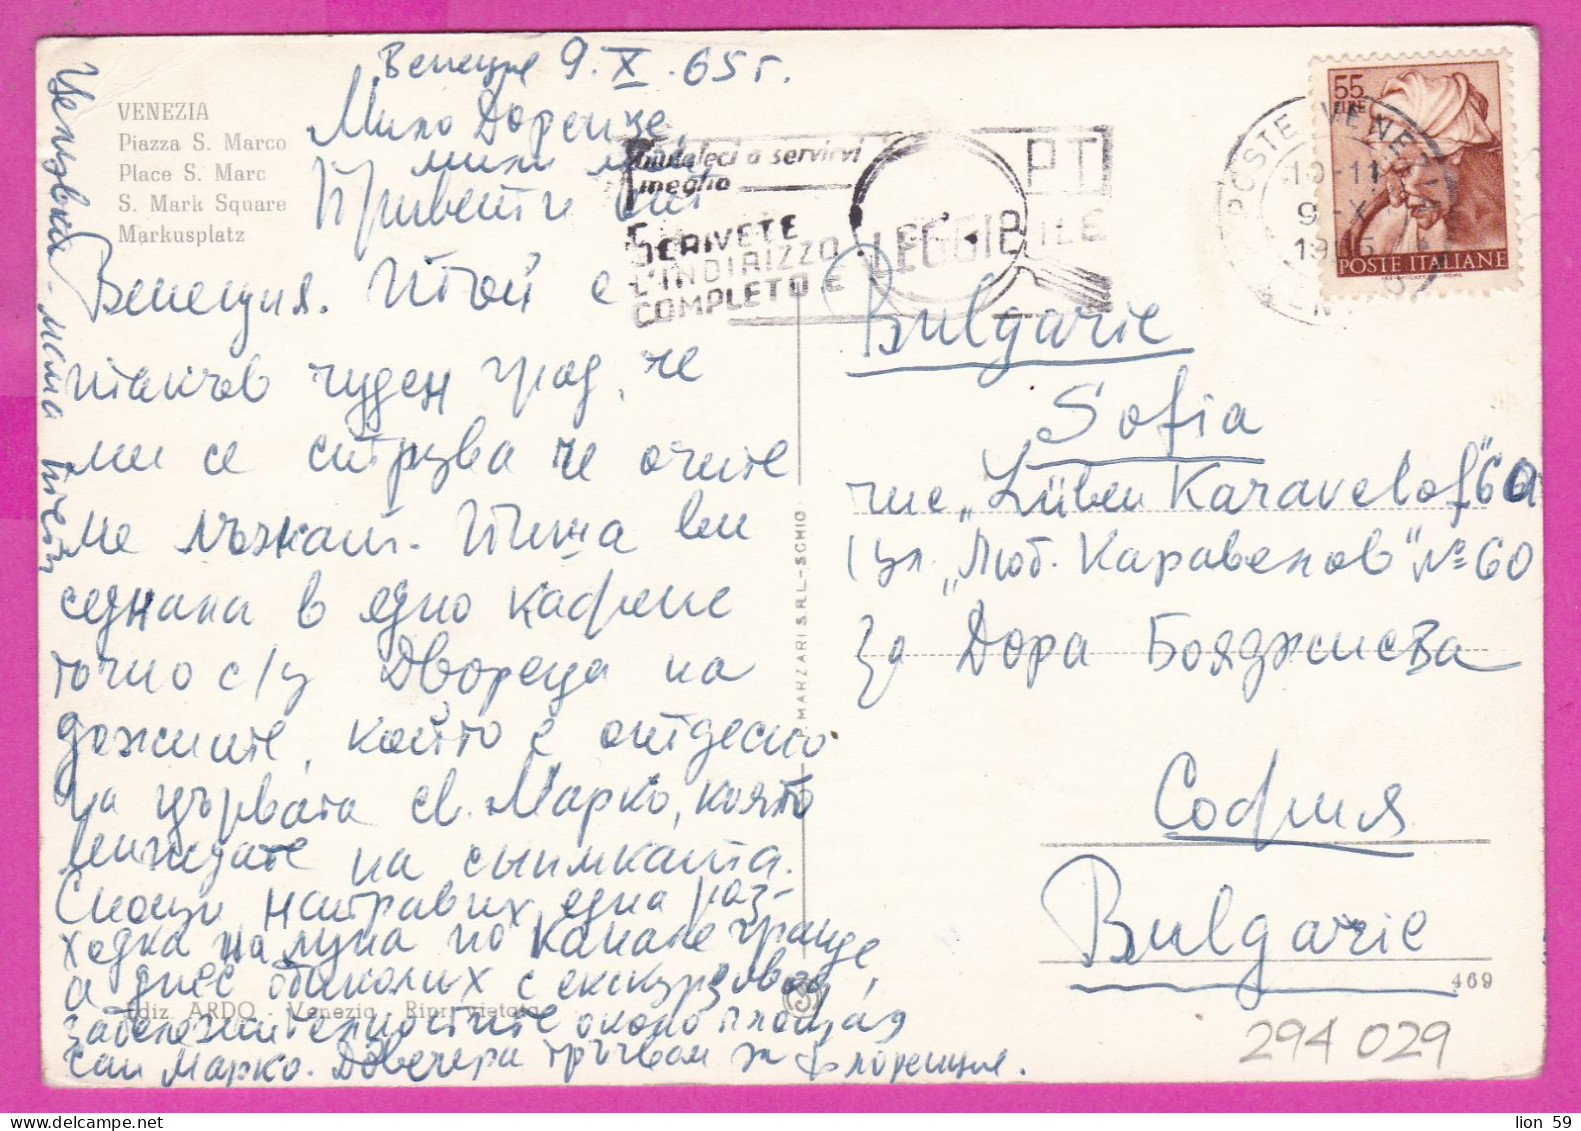 Венеция 9.X.65г.
VENEZIA
Piazza S. Marco
Place S. Marc
S. Mark Square
Markusplatz
Мило Доренце,
мили мой
Привети от
Венеция. Той е
такъв чуден град, че
ми се струва че очите
ме лъжат. Пиша ви
седнала в едно кафене
точно с/у Двореца на
дожите, който е отдесно
на църквата св. Марко, която
виждате на снимката.
Снощи направих една раз-
ходка на луна по Канале гранде,
а днес обиколих с екскурзовод
забележителностите около площад
Сан Марко. Довечера тръгвам за Флоренция.
Целувки - мама
Ediz. ARDO - Venezia Ripr. vietata
P. MARZARI S.R.L. - SCHIO
Aiutateci a servirvi
meglio
SCRIVETE
L'INDIRIZZO
COMPLETO E
LEGGIBILE
PT
POSTE VENEZIA
10-11
9-X
1965
55
LIRE
POSTE ITALIANE
Bulgarie
Sofia
rue „Lüben Karavelof" 60
(ул. „Люб. Каравелов" №60
За Дора Бояджиева
София
Bulgarie
469
294 029
lion 59